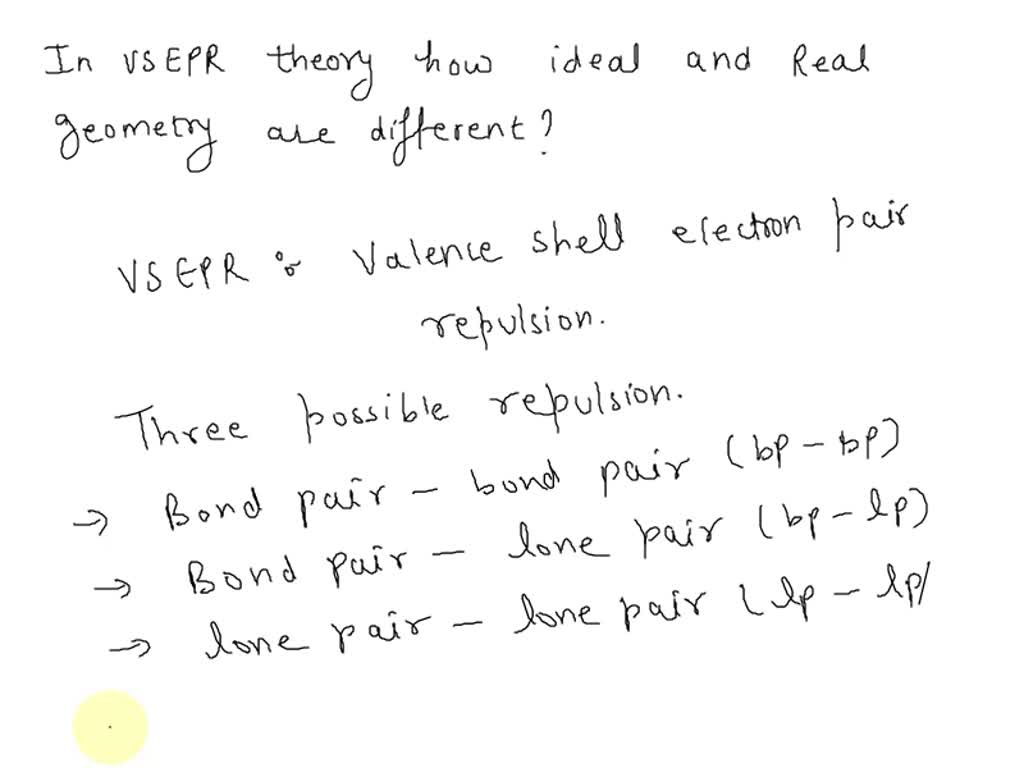 In VSEPR theory how ideal and Real
geometry are different?
VSEPR : Valence shell electron pair
repulsion.
Three possible repulsion.
→ Bond pair - bond pair (bp - bp)
→ Bond pair - lone pair (bp - lp)
→ lone pair - lone pair (lp - lp)